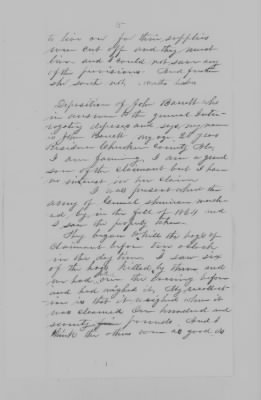 to live on for their supplies
were cut off and they must
live and I could not save any
of the provisions. And further
she saith not.
Deposition of John Barrett who
in answer to the general Inter-
rogatory deposes and says my name
is John Barrett my age 20 years
Residence Cherokee County Ala,
I am farming, I am a
son of the claimant but I have
no interest in her claim
I was present when the
army of General Sherman march-
ed by in the fall of 1864 and
I saw the property taken.
They began to kill the hogs of
claimant before ten oclock
in the day time. I saw six
of the hogs killed by them and
we had one the evening before
and had weighed it, My recollect-
ion is that it weighed when it
was cleaned One hundred and
seventy pounds. And I
think the others were as good as